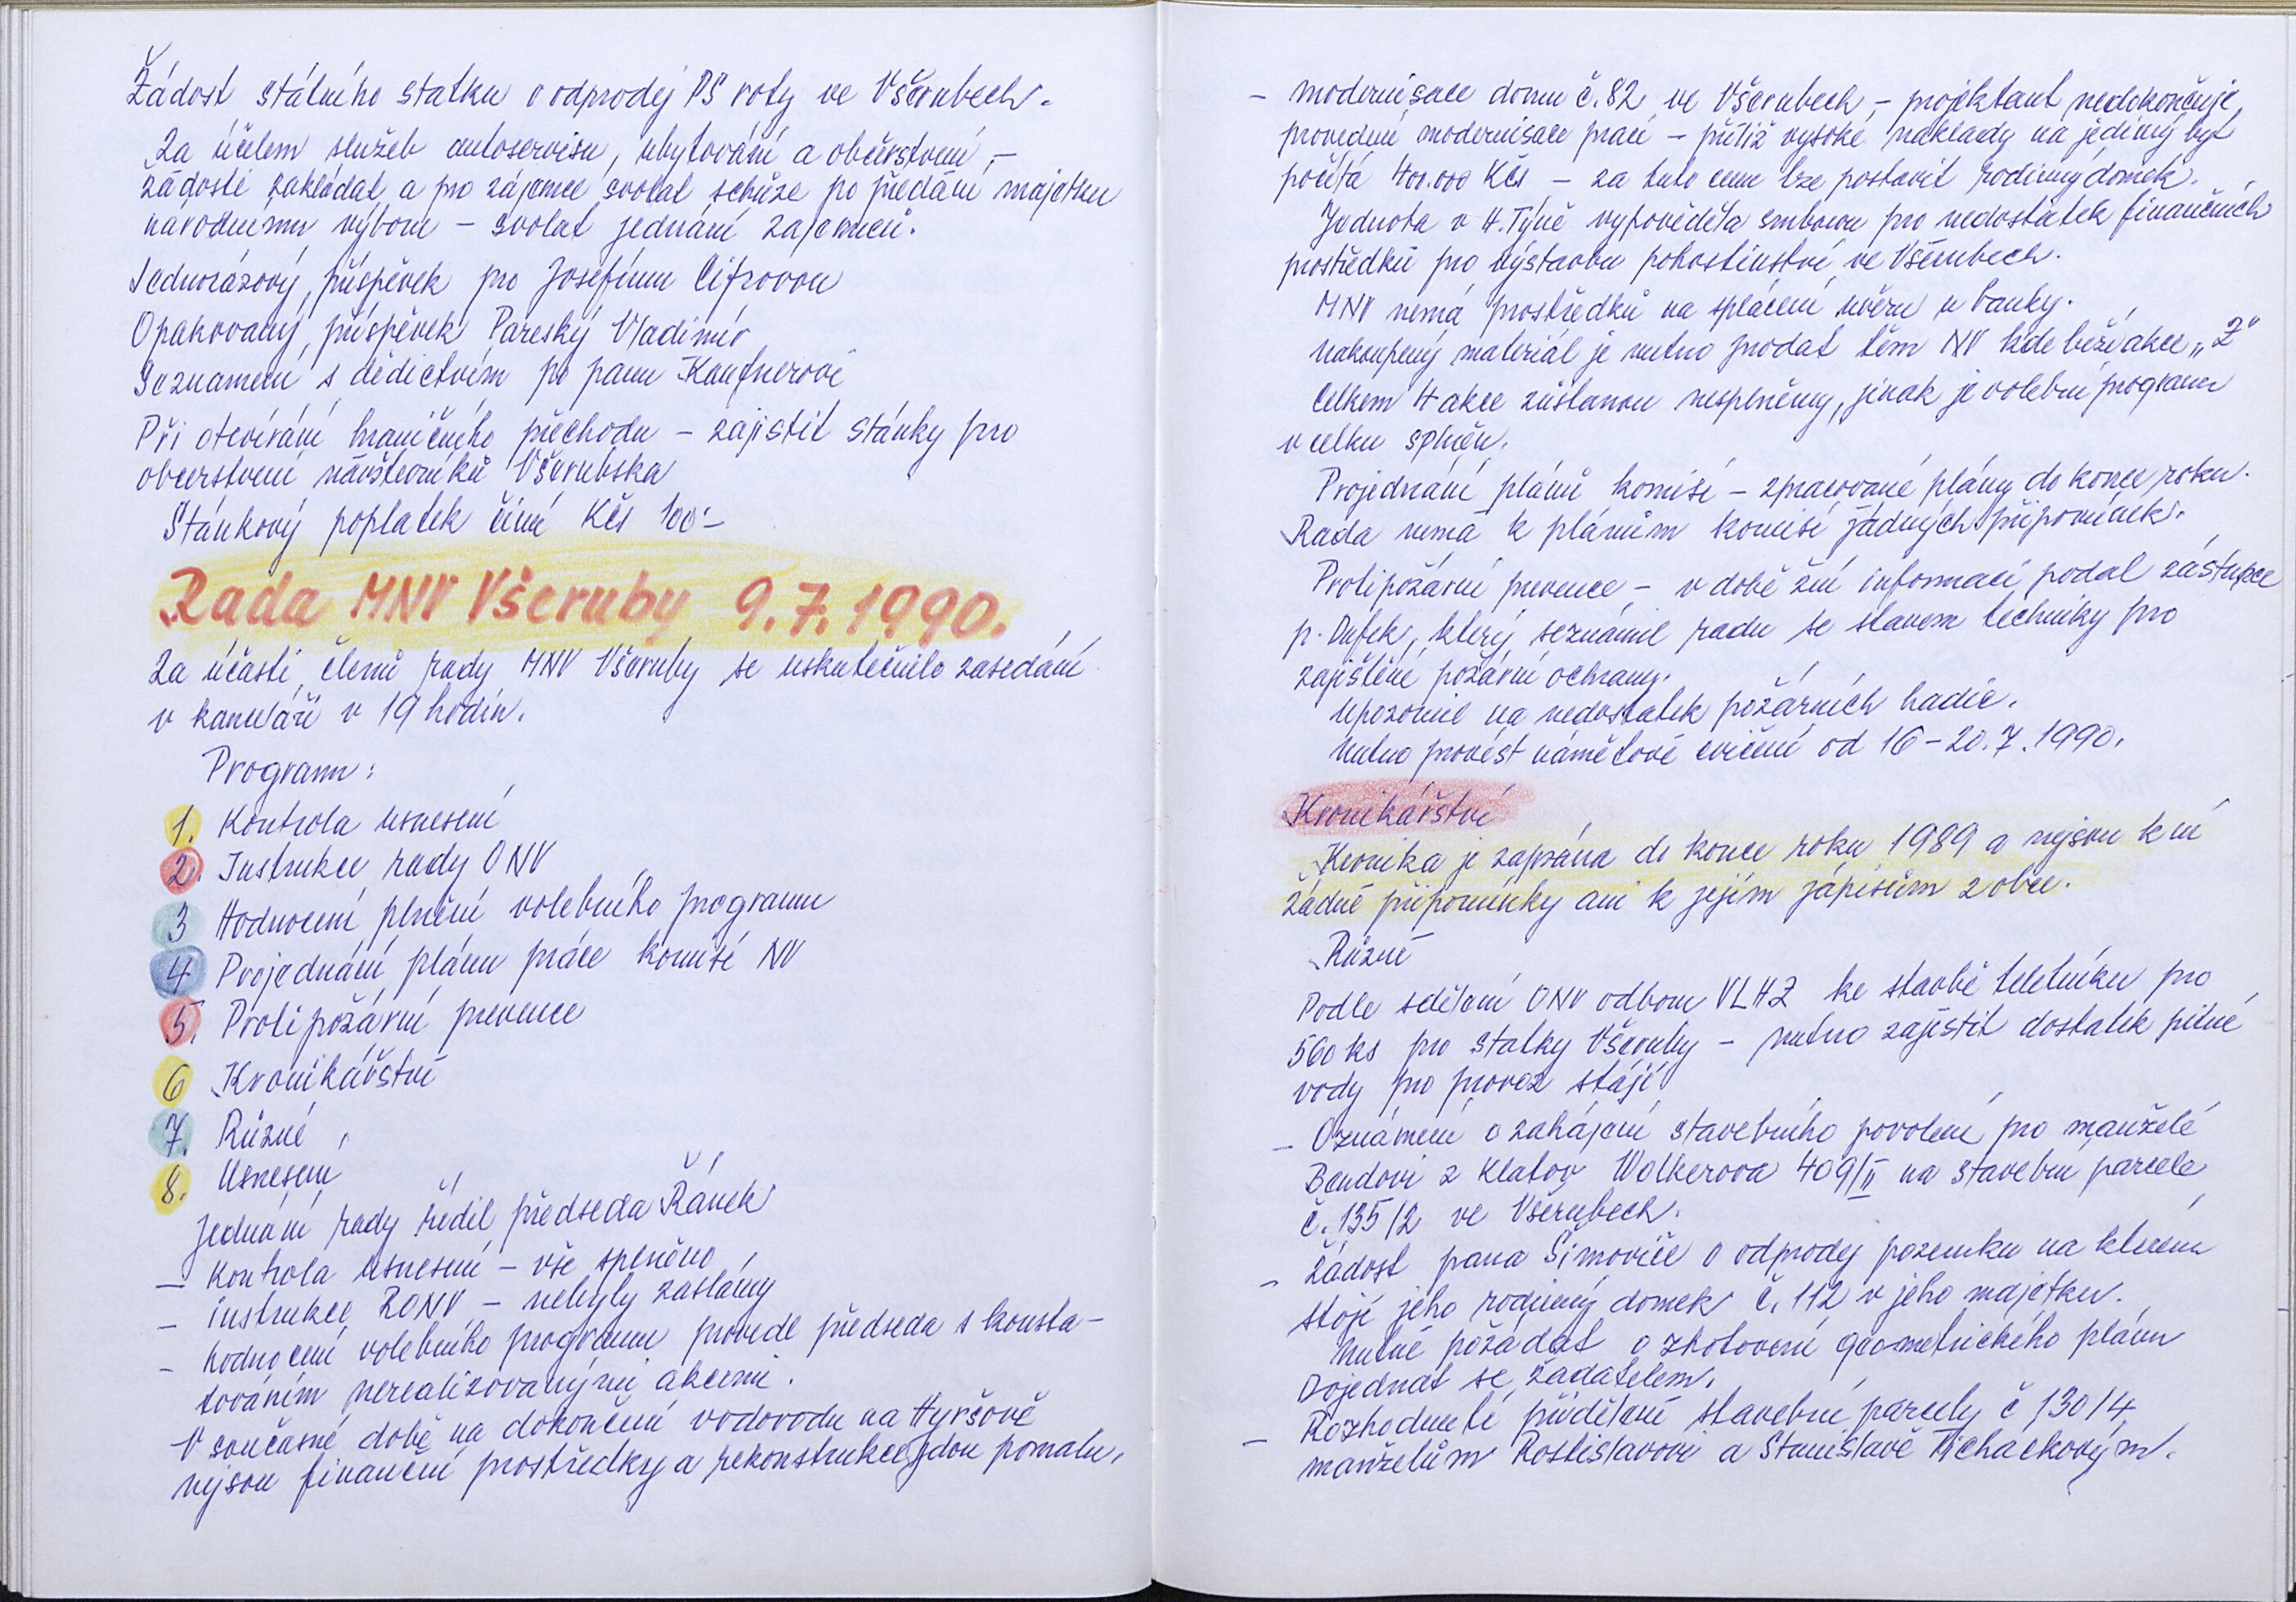 Žádost státního statku o odprodej PS roty ve Všerubech.
Za účelem služeb autoservisu, ubytování a občerstvení –
žádosti zakládat a pro zájemce svolat schůze po předání majetku
národnímu výboru – svolat jednání zájemců.
Jednorázový příspěvek pro Josefínu Cifrovou
Opakovaný příspěvek Pareský Vladimír
Seznámení s dědictvím po panu Kaufnerovi
Při otevírání hraničního přechodu – zajistit stánky pro
obcerstvení návštěvníků Všerubska
Stánkový poplatek činí Kčs 100:–
Rada MNV Všeruby 9.7.1990.
Za účasti členů rady MNV Všeruby se uskutečnilo zasedání
v kanceláři v 19 hodin.
Program:
1. Kontrola usnesení
2. Instrukce rady ONV
3 Hodnocení plnění volebního programu
4 Projednání plánu práce komisí NV
5. Protipožární prevence
6 Kronikářství
7. Různé
8. Usnesení
Jednání rady řídil předseda Řánek
– Kontrola usnesení – vše splněno
– instrukce RONV – nebyly zaslány
– hodnocení volebního programu provede předseda s konsta-
továním nerealizovanými akcemi.
V současné době na dokončení vodovodu na Hyršově
nejsou finanční prostředky a rekonstrukce jdou pomalu.
– modernisace domu č.82 ve Všerubech – projektant nedokončuje
provedení modernisace prací – příliž vysoké náklady na jediný byt
počítá 400.000 Kčs – za tuto cenu lze postavit rodinný domek.
Jednota v H.Týně vypověděla smlouvu pro nedostatek finančních
prostředků pro výstavbu pohostinství ve Všerubech.
MNV nemá prostředků na splácení úvěru u banky.
Nakoupený materiál je nutno prodat těm NV kde běží akce „Z"
Celkem 4 akce zůstanou nesplněny, jinak je volební program
v celku splněn.
Projednání plánů komisí – zpracované plány do konce roku.
Rada nemá k plánům komisí žádných připomínek.
Protipožární prevence – v době žní informaci podal zástupce
p. Dufek, který seznámil radu se stavem techniky pro
zajištění požární ochrany.
Upozornil na nedostatek požárních hadic.
Nutno provést námětové cvičení od 16–20.7.1990.
Kronikářství
Kronika je zapsána do konce roku 1989 a nejsou k ní
žádné připomínky ani k jejím zápisům z obce.
Různé
Podle sdělení ONV odboru VLHZ ke stavbě teletníku pro
560 ks pro Statky Všeruby – nutno zajistit dostatek pitné
vody pro provoz stájí
– Oznámení o zahájení stavebního povolení pro manželé
Bendovi z Klatov Wolkerova 409/II na stavební parcele
č.135/2 ve Všerubech.
– žádost pana Šimoviče o odprodej pozemku na kterém
stojí jeho rodinný domek č.112 v jeho majetku.
Nutné požádat o zhotovení geometrického plánu
Dojednat se žadatelem.
– Rozhodnutí přidělení stavební parcely č 130/4
manželům Rostislavovi a Stanislavě Ticháčkovým.